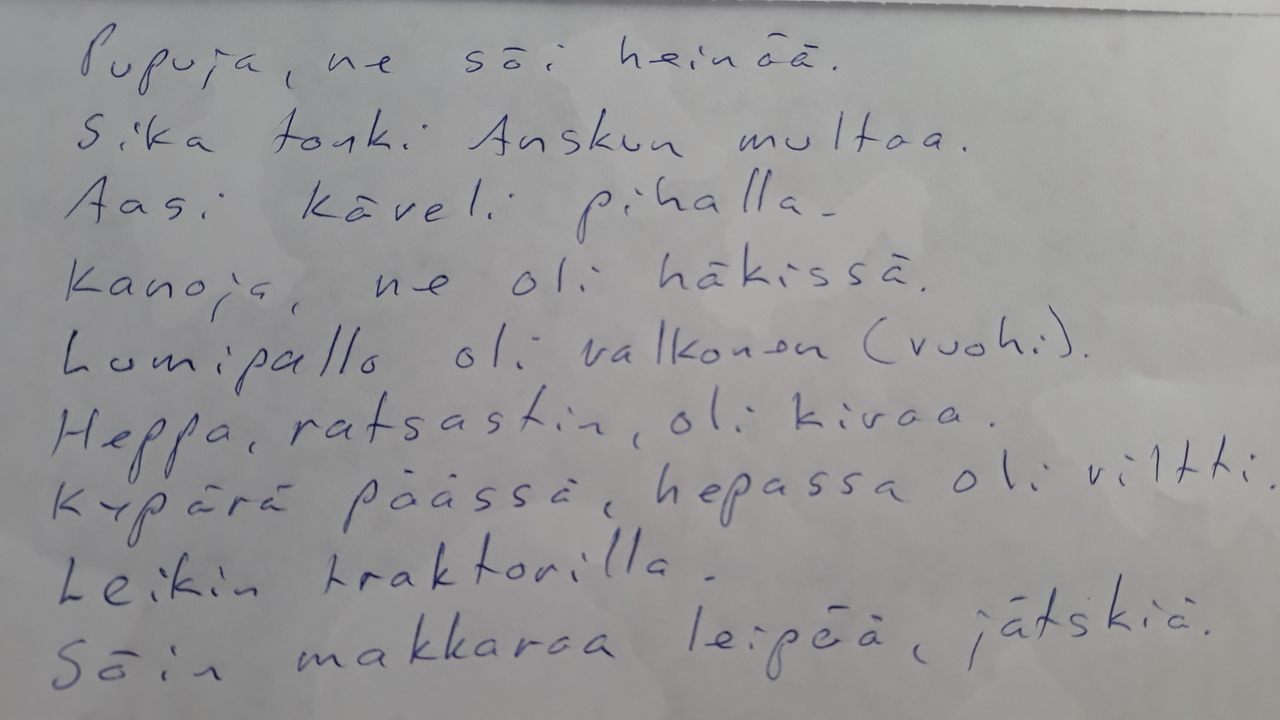 Pupuja, ne söi heinää.
Sika tonki Anskun multaa.
Aasi käveli pihalla.
Kanoja, ne oli häkissä.
Lumipallo oli valkonen (vuohi).
Heppa, ratsastin, oli kivaa.
Kypärä päässä, hepassa oli viltti.
Leikin traktorilla.
Söin makkaraa leipää, jätskiä.